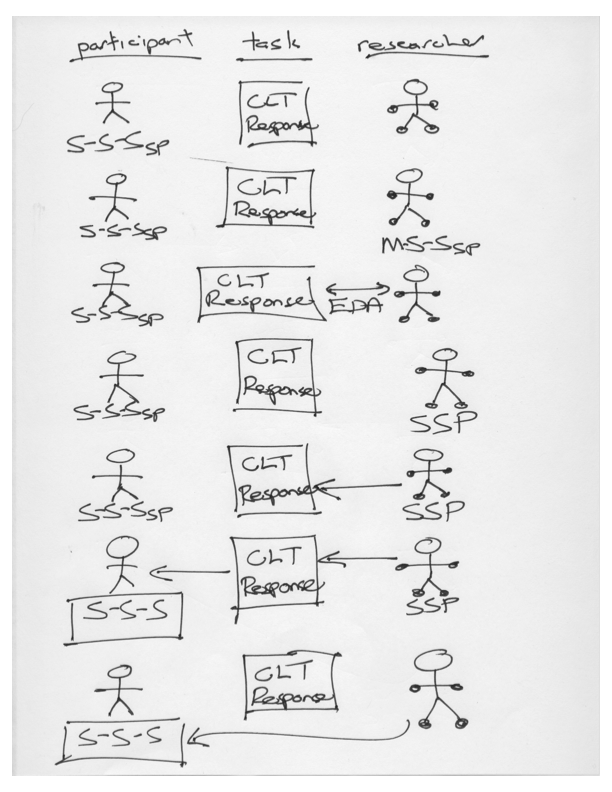 participant task researcher
CLT
Response
S-S-SSP
CLT
Response
S-S-SSP M-S-SSP
CLT
Response EDA
S-S-SSP
CLT
Response
S-S-SSP SSP
CLT
Response
S-S-SSP SSP
CLT
Response
S-S-S SSP
CLT
Response
S-S-S